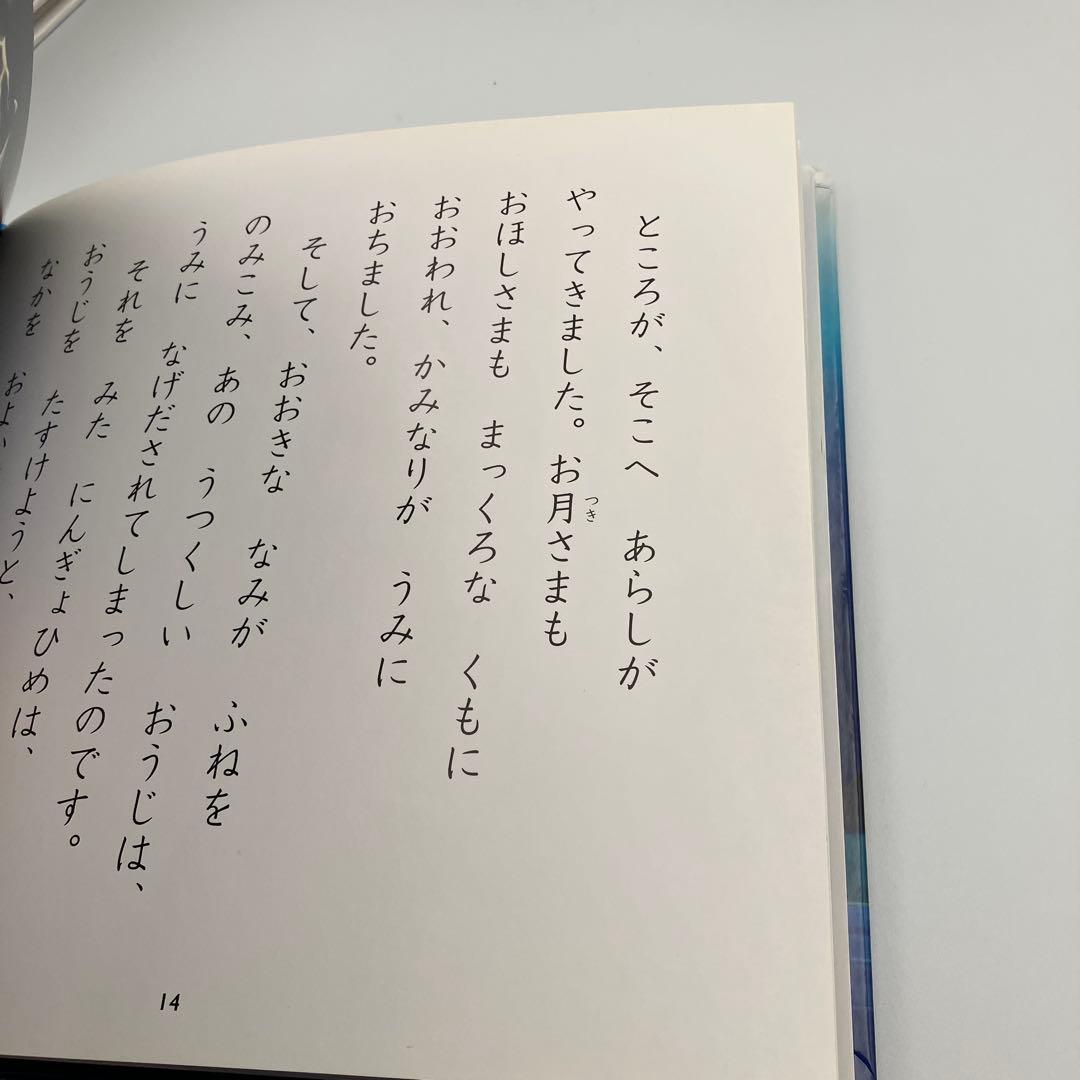 ところが、そこへ あらしが
やってきました。お月さまも
つき
おほしさまも まっくろな くもに
おおわれ、かみなりが うみに
おちました。
そして、おおきな なみが ふねを
のみこみ、あの うつくしい おうじは、
うみに なげだされてしまったのです。
それを みた にんぎょひめは、
おうじを たすけようと、
なかを
14